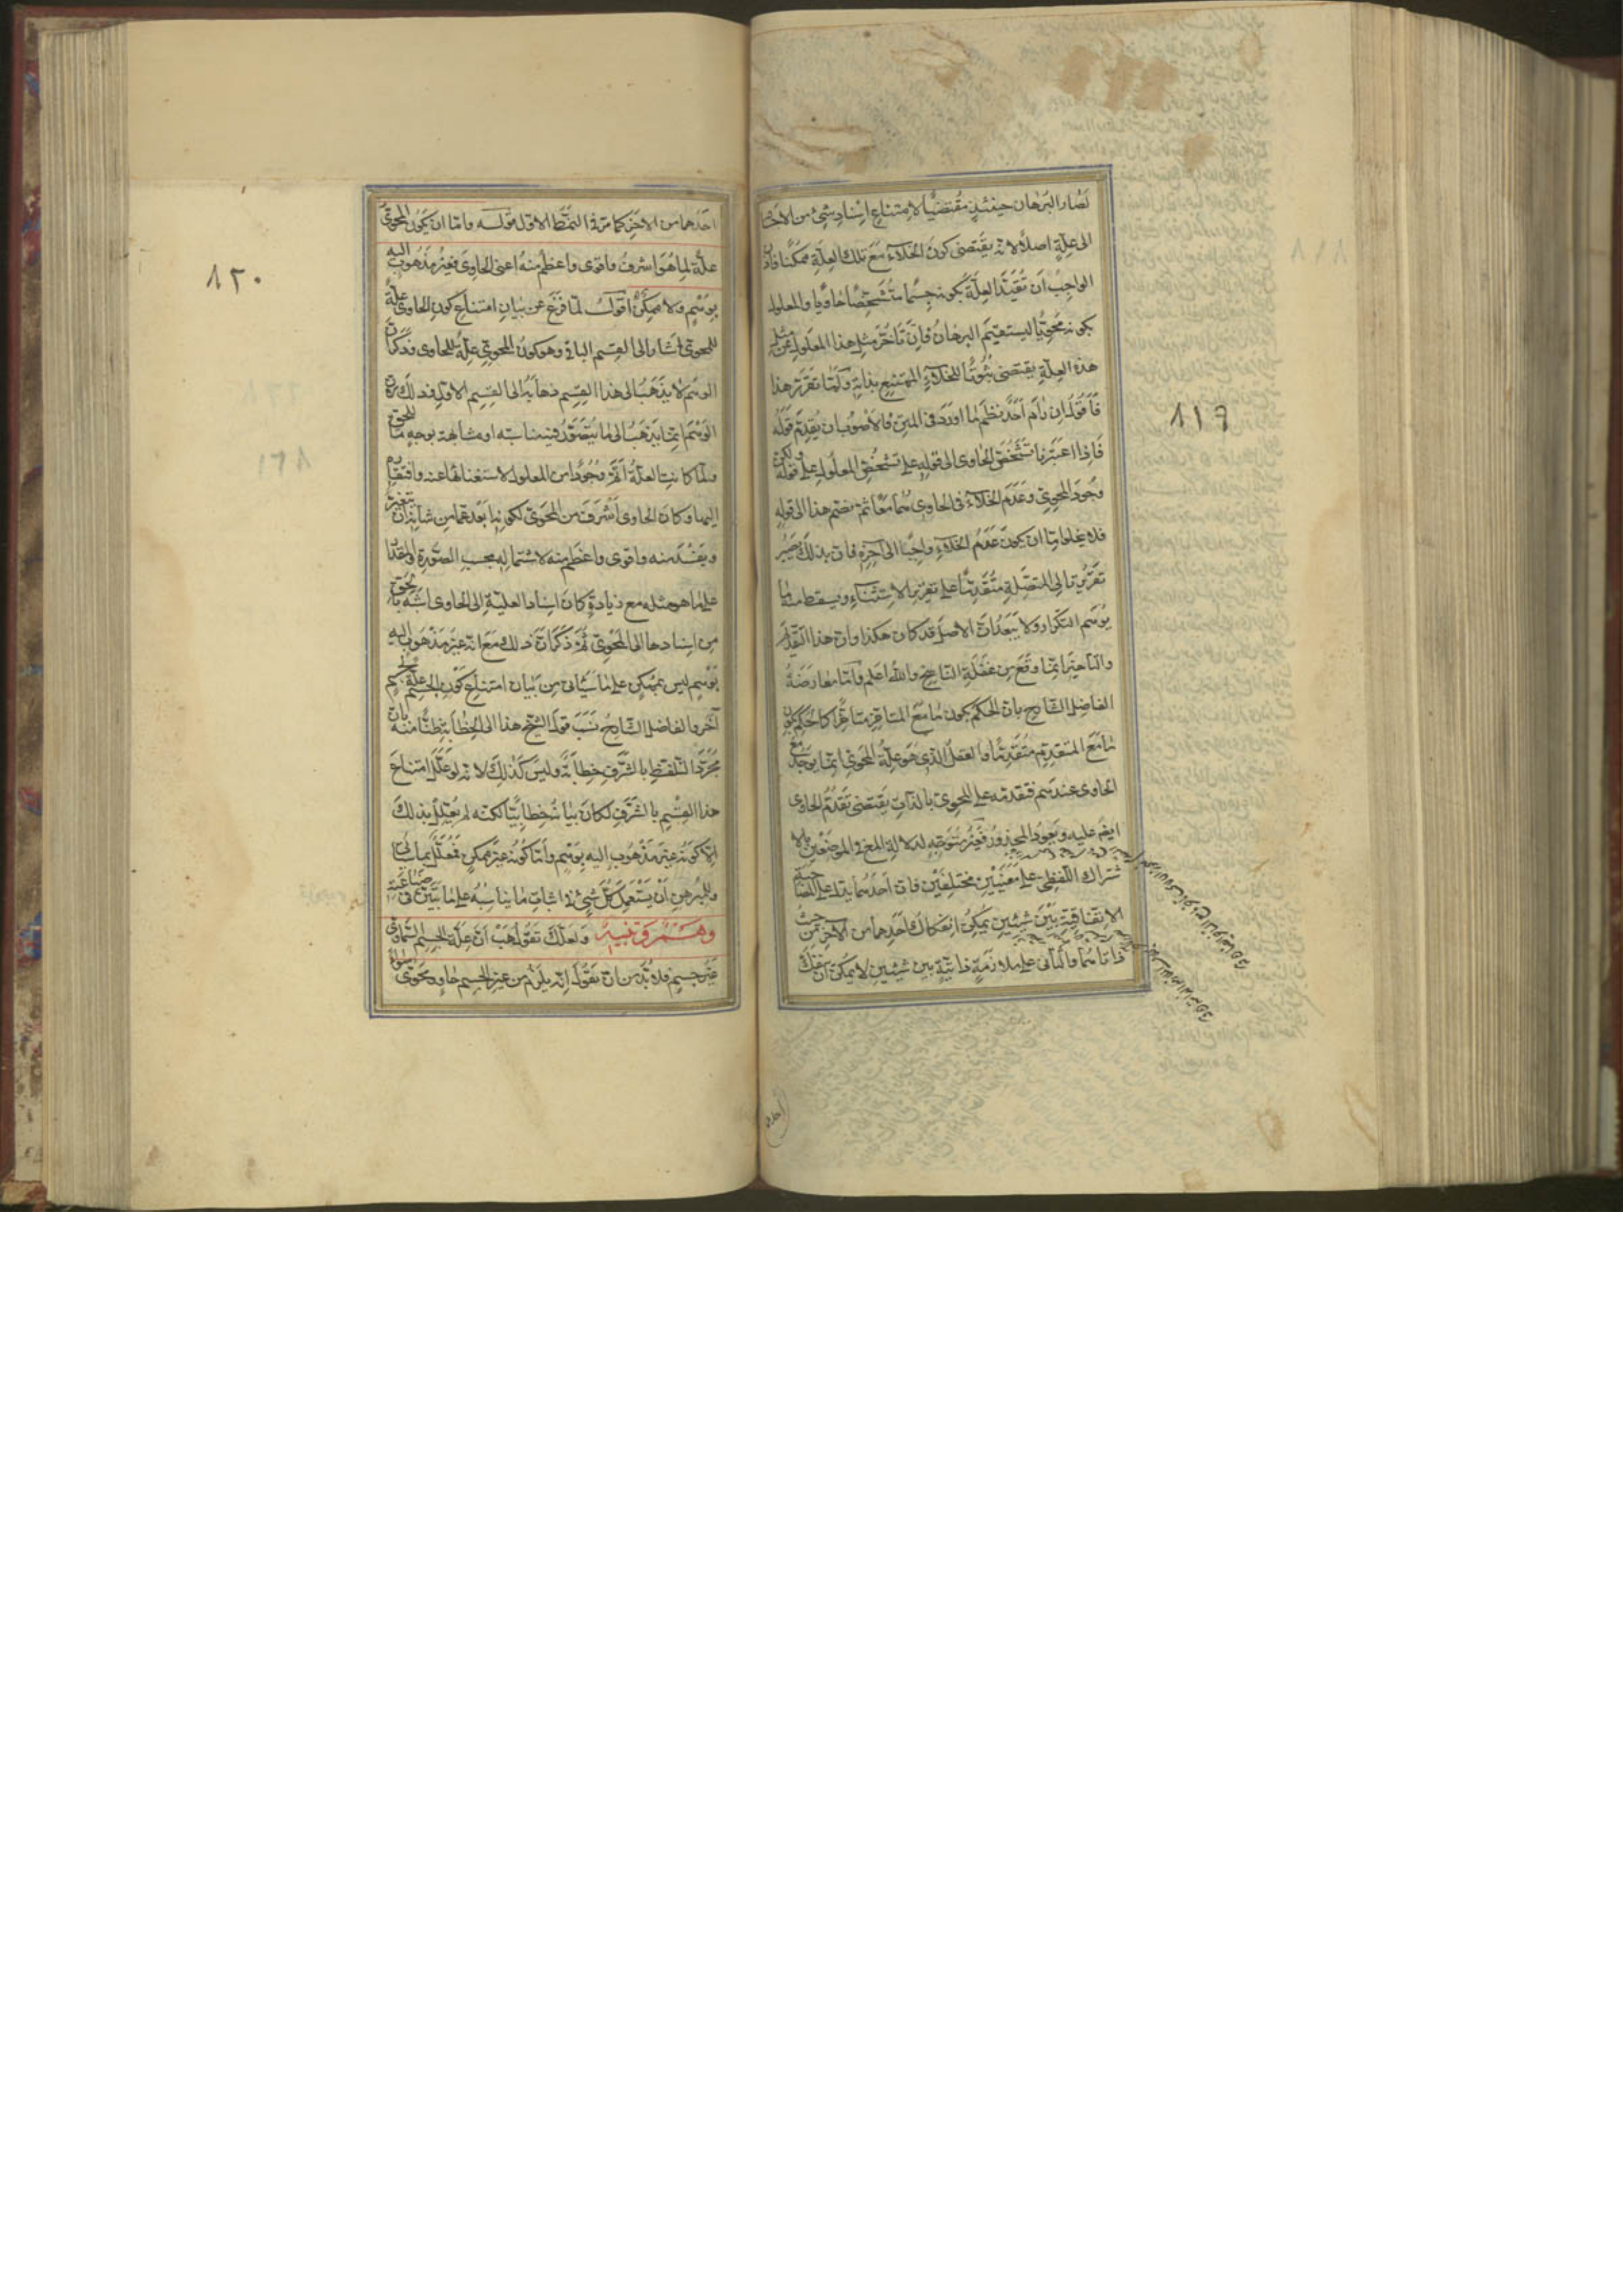 لصار البرهان حينئذٍ مقتضيًا لامتناع إسناد شيء من الأجسام
الى علّةٍ اصلًا لانه يقتضى كون الخلاء مع تلك العلّة ممكنا فاذن
الواجب ان تقيّد العلّة بكونه جسما متشخصًا حاويا والمعلول
بكونه محويًّا ليستقيم البرهان فانّ تأخّر مثل هذا المعلول عن مثل
هذه العلّة يقتضى ثبوتًا للخلاء الممتنع بذاته ولمّا تقرّر هذا
فاقول ان رام احدٌ نظم ما اورد فى المتن فالاصوب ان يقدّم قوله
فاذا اعتبرنا تشخّص الحاوى الى قوله على تشخّص المعلول على قوله ولكن
وجود المحوىّ وعدم الخلاء فى الحاوى هما معًا ثم يضمّ هذا الى قوله
فلا يخلو امّا ان يكون عدم الخلاء واجبًا الى آخره فانّ بذلك يصير
تقرير تالى المتصلة متقدّمًا على تقرير الاستثناء ويسقط منه ما
يوهم التكرار ولا يبعد انّ الاصل قد كان هكذا وانّ هذا التقديم
والتأخير انّما وقع من غفلة الناسخ والله اعلم وامّا معارضة
الفاضل الشارح بانّ الحكم بكون ما مع المتأخّر متأخّرًا كالحكم بكون
ما مع المتقدم متقدّمًا والعقل الذى هو علّة المحوىّ انّما يوجد مع
الحاوى عندهم فتقدمه على المحوىّ بالذات يقتضى تقدّم الحاوى
ايضا عليه ويعود المحذور فغير متوجّهٍ لدلالة المع فى الموضعين بالا
شتراك اللفظى على معنيين مختلفين فانّ احدهما يدلّ على المصاحبة
الاتفاقية بين شيئين يمكن انفكاك احدهما من الآخر من حيث
ذاتاهما والثانى على ملازمةٍ ذاتيّةٍ بين شيئين لا يمكن ان ينفك
١١٩
احدهما من الآخر كما مرّ فى النمط الاول قوله وامّا ان يكون المحوىّ
علّة لما هو اشرف واقوى واعظم منه اعنى الحاوى فغير مذهوب اليه
بوهم ولا ممكن اقول لمّا فرغ عن بيان امتناع كون الحاوى علّة
للمحوىّ اشار الى القسم الباقى وهو كون المحوىّ علّة للحاوى وذكر انّ
الوهم لا يذهب الى هذا القسم ذهابه الى القسم الاول وذلك لانّ
الوهم انّما يذهب الى ما يتصوّر فيه مناسبه او مشابهة بوجهٍ ما للحق
ولمّا كانت العلّة اتمّ وجودًا من المعلول لاستغنائها عنه وافتقاره
اليها وكان الحاوى اشرف من المحوىّ لكونه ابعد عمّا من شأنه ان يتغير
ويفسد منه واقوى واعظم منه لاشتماله بحسب الصورة والمقدار
على ما هو مثله مع زيادةٍ كان اسناد العليّة الى الحاوى اشبه بالحق
من اسنادها الى المحوىّ ثم ذكر انّ ذلك مع انه غير مذهوب اليه
بوهم ليس بممكن على ما سيأتى من بيان امتناع كون الجسم علّة لجسم
آخر والفاضل الشارح نسب قول الشيخ هذا الى الخطابة ظنًّا منه بانّ
مجرّد التلفظ بالشرف خطابةٌ وليس كذلك لانه لو علّل امتناع
هذا القسم بالشرف لكان بيانه خطابيّا لكنه لم يعلّل بذلك
الّا كونه غير مذهوب اليه بوهم وامّا كونه غير ممكن فمعلّل بما سيأتى
وللمبرهن ان يستعمل كل شىء فى اثبات ما يناسبه على ما تبيّن فى صناعته
وهم وتنبيه ولعلك تقول هب انّ علّة الجسم السماوى
غير جسم فلا بدّ من ان تقول انّه يلزم من غير الجسم حاوٍ ومحوى سواء
١٢٠